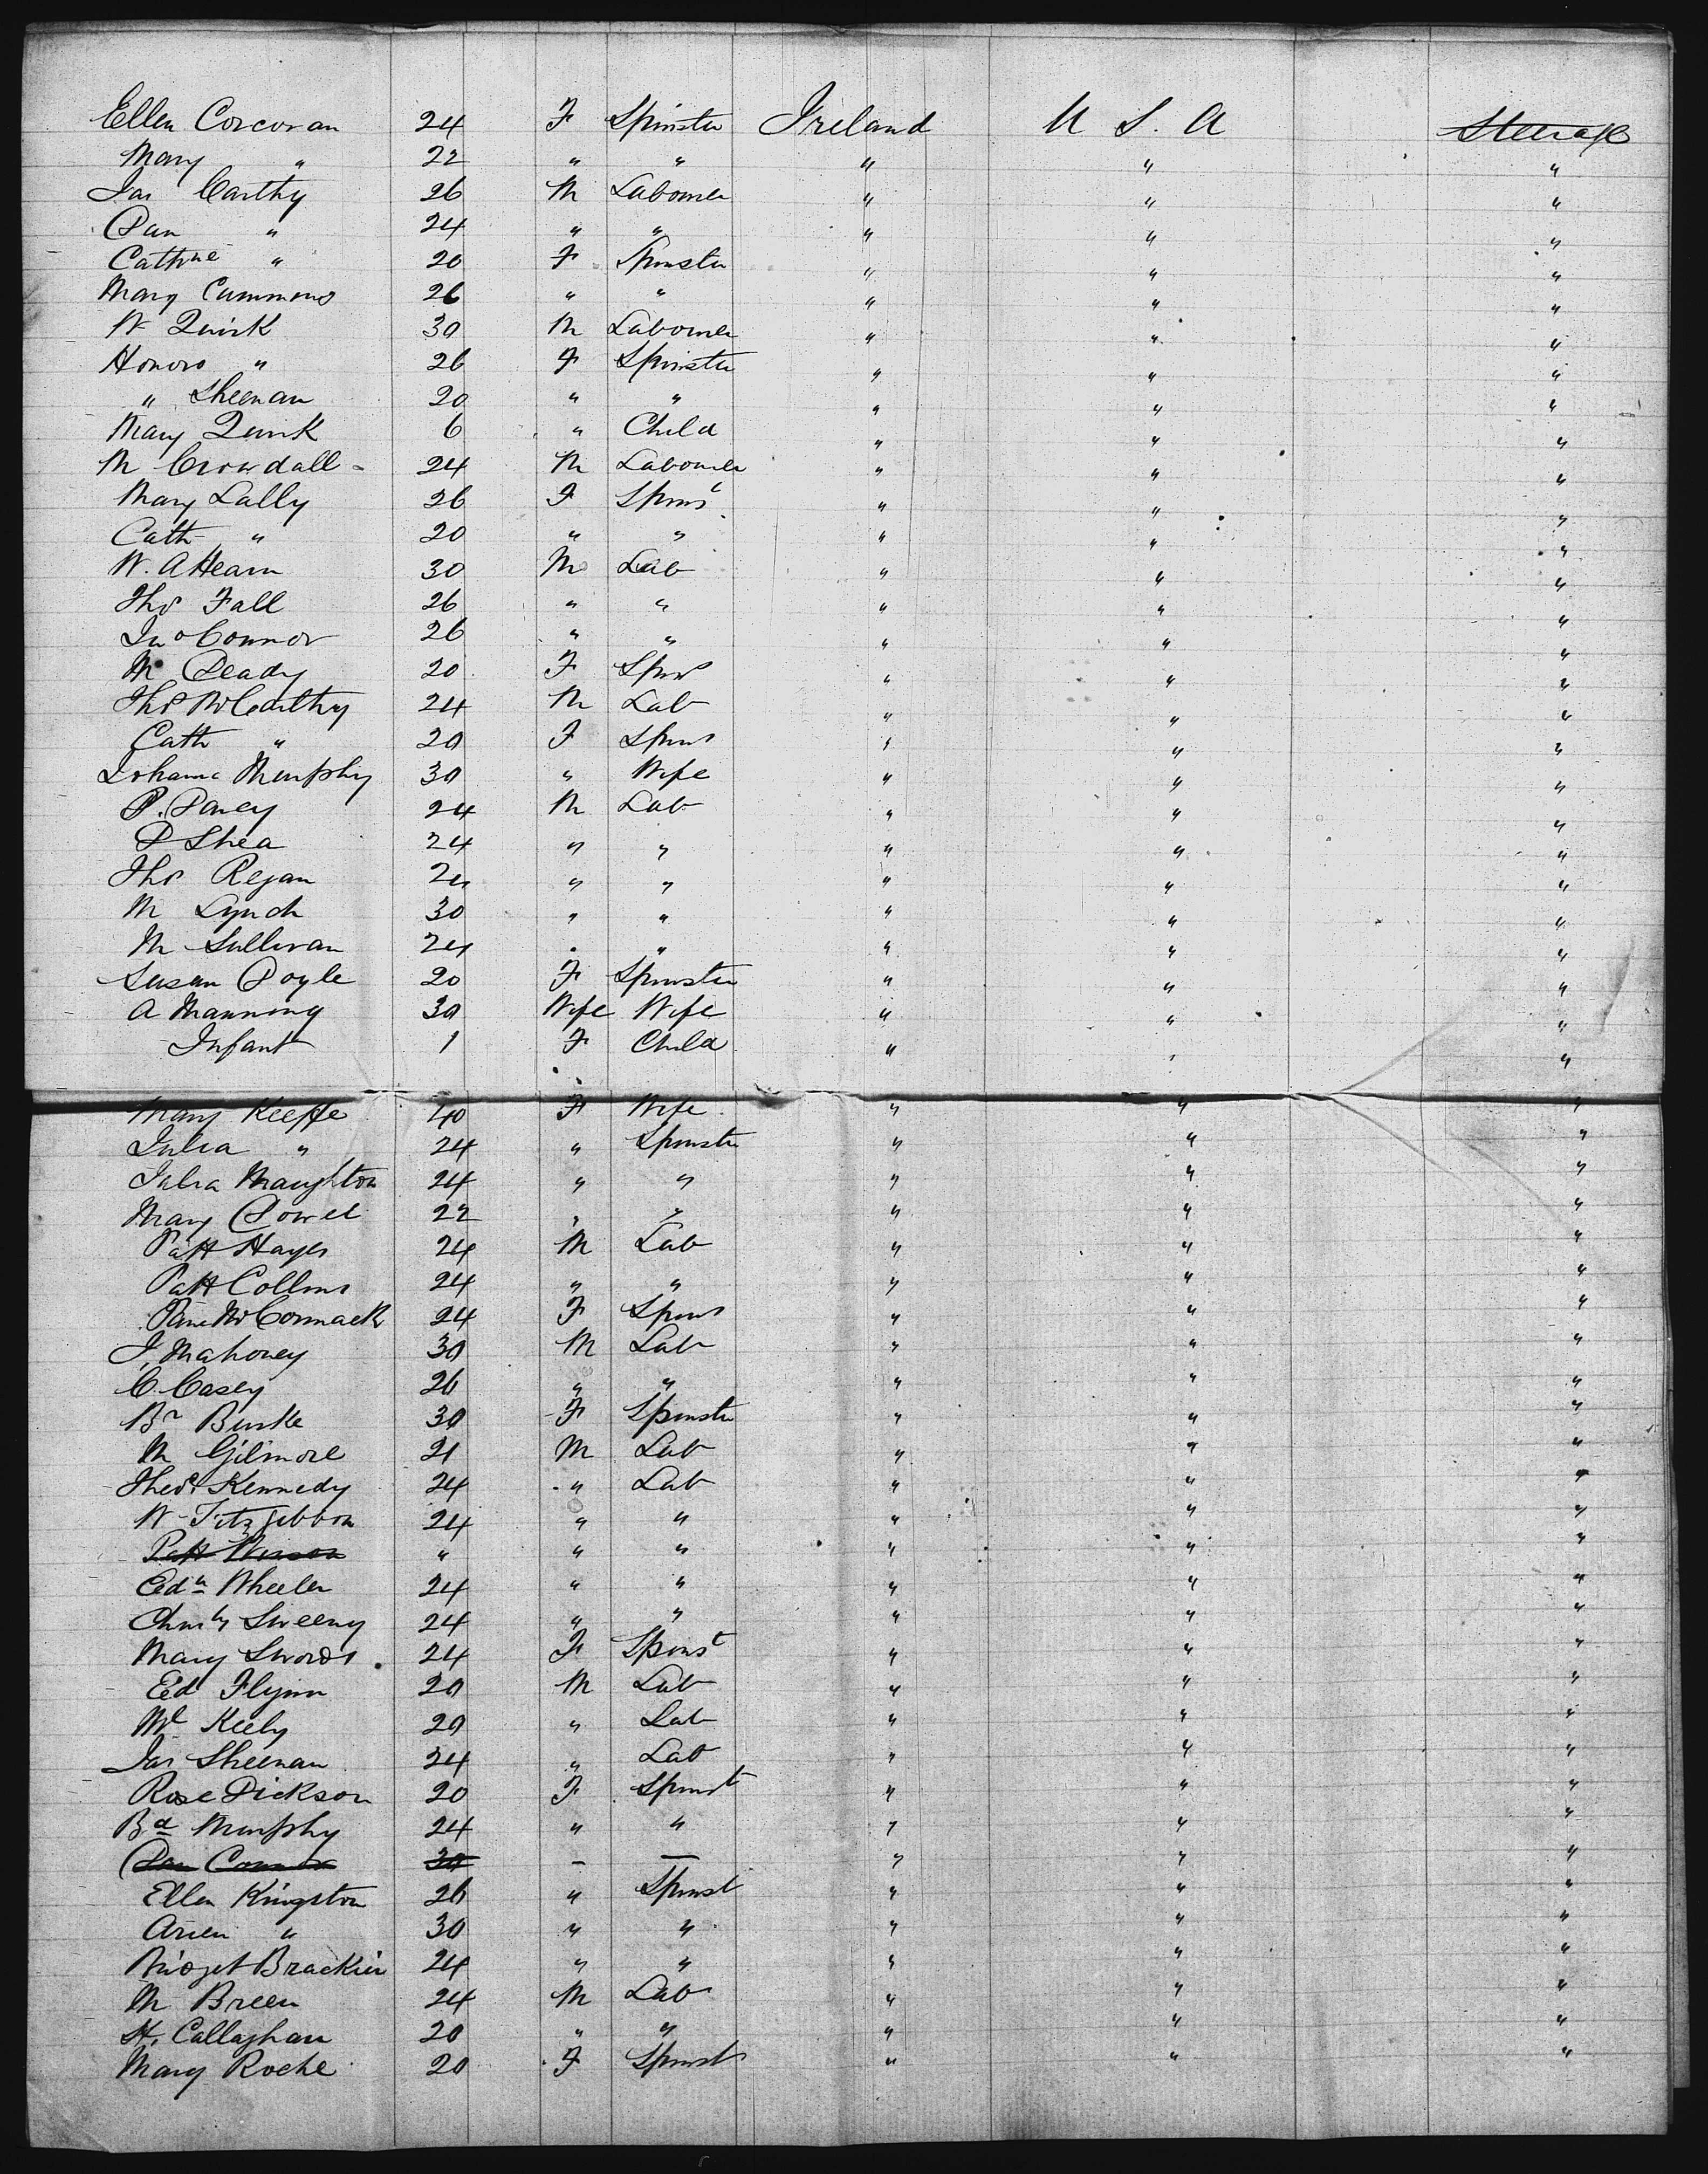 Ellen Corcoran 24 F Spinster Ireland U S. A Steerage
Mary " 22 " " " " "
Jas Carthy 26 M Labourer " " "
Dan " 24 " " " " "
Cathne " 20 F Spinster " " "
Mary Cummins 26 " " " " "
W Quirk 30 M Labourer " " "
Honora " 26 F Spinster " " "
" Sheenan 20 " " " " "
Mary Quirk 6 " Child " " "
M Crowdall 24 M Labourer " " "
Mary Lally 26 F Spinst " " "
Cath " 20 " " " " "
W. AHearn 30 M Lab " " "
Thos Fall 26 " " " " "
Jn oConnor 26 " " " " "
M Deady 20 F Spins " " "
Thos McCarthy 24 M Lab " " "
Cath " 20 F Spins " " "
Johanna Murphy 30 " Wife " " "
P. Davey 24 M Lab " " "
D Shea 24 " " " " "
Thos Regan 24 " " " " "
M Lynch 30 " " " " "
M Sullivan 24 " " " " "
Susan Doyle 20 F Spinster " " "
A Manning 30 Wife Wife " " "
Infant 1 F Child " " "
Mary Keeffe 40 F Wife " " "
Julia " 24 " Spinster " " "
Julia Naughton 24 " " " " "
Mary Power 22 " " " " "
Patt Hayes 24 M Lab " " "
Patt Collins 24 " " " " "
Jane McCormack 24 F Spins " " "
J. Mahoney 30 M Lab " " "
C. Casey 26 " " " " "
Br Burke 30 F Spinster " " "
M Gilmore 21 M Lab " " "
Theos Kennedy 24 " Lab " " "
W Fitzgibbon 24 " " " " "
Patt " " " " " "
Edn Wheeler 24 " " " " "
Chrisy Sweeny 24 " " " " "
Mary Swords 24 F Spinst " " "
Ed Flynn 20 M Lab " " "
Ml Keely 20 " Lab " " "
Jas Sheenan 24 " Lab " " "
Rose Dickson 20 F Spinst " " "
Bd Murphy 24 " " " " "
Dan Connor 30 - - " " "
Ellen Kingston 26 " Spinst " " "
" 30 " " " " "
Bridget Brackin 24 " " " " "
M Breen 24 M Lab " " "
H. Callaghan 20 " " " " "
Mary Roche 20 F Spinst " " "